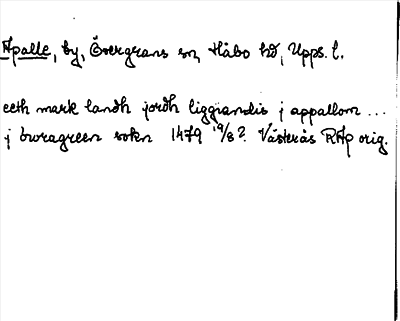 Apalle, by, Övergrans sn, Håbo hd, Upps. l.
eeth mark landh jordh liggiandis j appallom ...
j òwragreen sokn 1479 19/8? Västerås RAp orig.